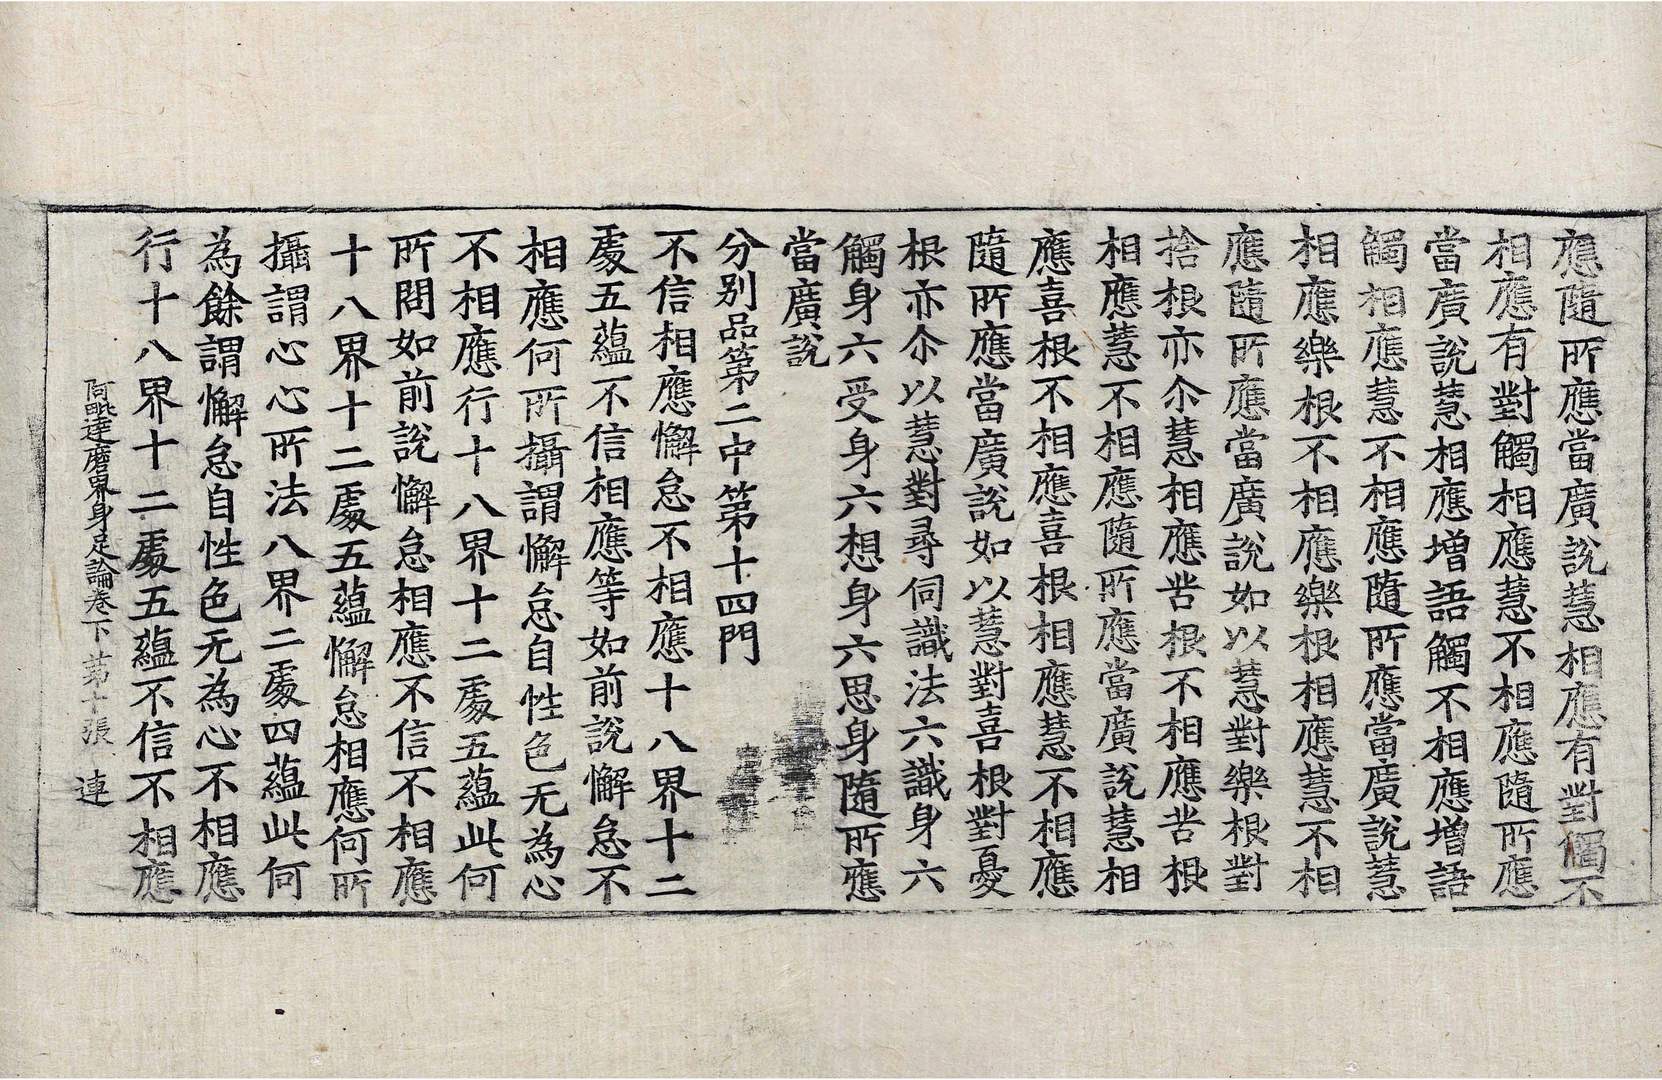 應隨所應當廣說慧相應有對觸不
相應有對觸相應慧不相應隨所應
當廣說慧相應增語觸不相應增語
觸相應慧不相應隨所應當廣說慧
相應樂根不相應樂根相應慧不相
應隨所應當廣說如以慧對樂根對
捨根亦尒慧相應苦根不相應苦根
相應慧不相應隨所應當廣說慧相
應喜根不相應喜根相應慧不相應
隨所應當廣說如以慧對喜根對憂
根亦尒以慧對尋伺識法六識身六
觸身六受身六想身六思身隨所應
當廣說
分別品第二中第十四門
不信相應懈怠不相應十八界十二
處五蘊不信相應等如前說懈怠不
相應何所攝謂懈怠自性色无為心
不相應行十八界十二處五蘊此何
所問如前說懈怠相應不信不相應
十八界十二處五蘊懈怠相應何所
攝謂心心所法八界二處四蘊此何
為餘謂懈怠自性色无為心不相應
行十八界十二處五蘊不信不相應
阿毗達磨界身足論卷下 苐十張 連